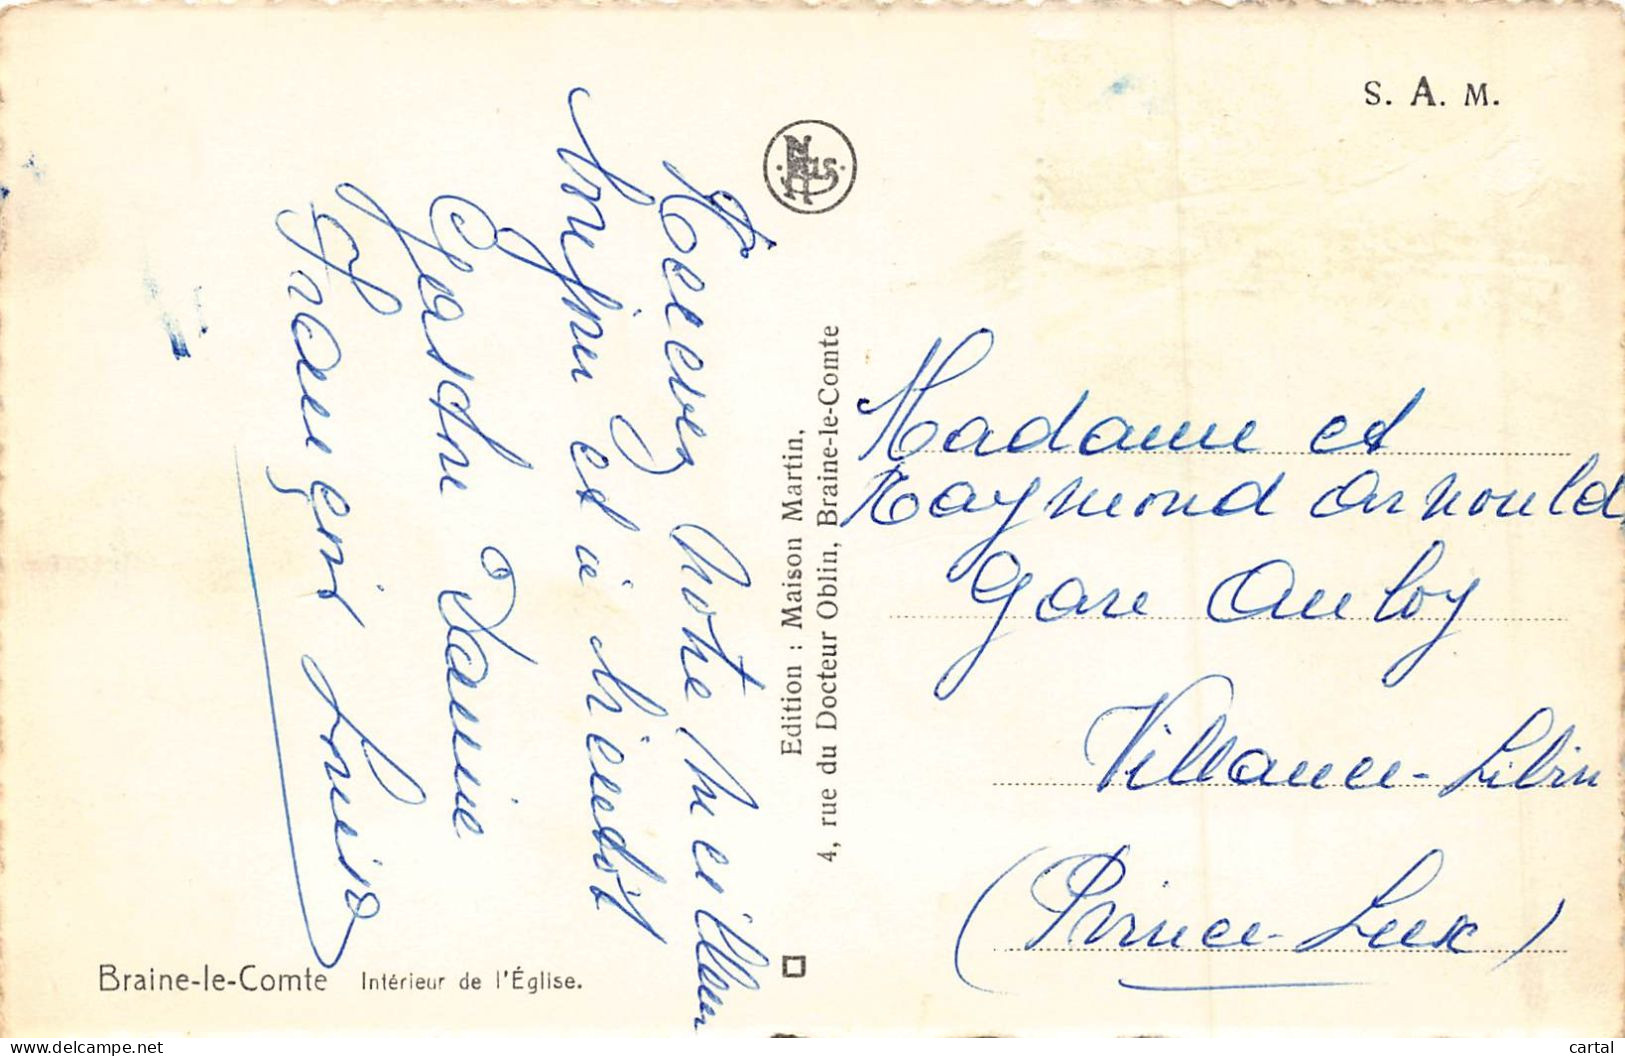 Recevez notre meilleur
Souvenir et à bientôt
Gaston Jeanne
Françoise Louis
Braine-le-Comte Intérieur de l'Église.
Edition : Maison Martin,
4, rue du Docteur Oblin, Braine-le-Comte
S. A. M.
Madame et
Raymond Arnould
gare Anloy
Villance-Libin
(Prince-Lux)
delcampe.net
cartal